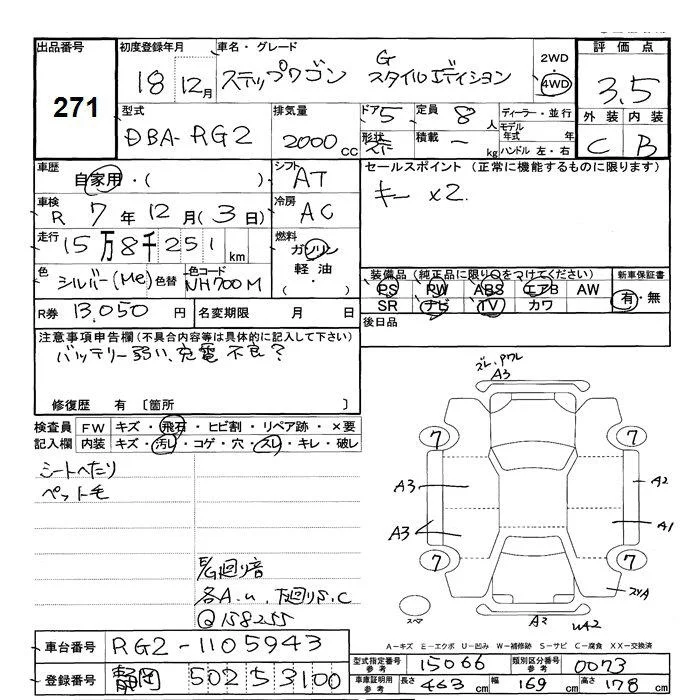 出品番号 初度登録年月 車名・グレード 評価点
271 18 12月 ステップワゴン G スタイルエディション 2WD 4WD 3.5
型式 排気量 ドア 5 定員 8人 ディーラー・並行 外装 内装
DBA-RG2 2000cc 形状 積載 - kg モデル年式 年 ハンドル 左・右 C B
車歴 シフト セールスポイント (正常に機能するものに限ります)
自家用・( ) AT キー x2
車検 冷房
R 7年 12月 (3日) AC
走行 燃料
15万8千251km ガソリン
軽油
( ・ )
色 色替 色コード 装備品 (純正品に限り○をつけてください) 新車保証書
シルバー(Me) NH700M PS PW ABS エアB AW 有・無
SR ナビ TV カワ
R券 13,050円 名変期限 月 日 後日品
注意事項申告欄 (不具合内容等は具体的に記入して下さい)
バッテリー弱い、充電不良?
修復歴 有 〔箇所 〕
検査員 FW キズ・飛石・ヒビ割・リペア跡・×要
記入欄 内装 キズ・汚レ・コゲ・穴・スレ・キレ・破レ
シートへたり
ペット毛
E/G廻り音
各A.u、下廻りS.C
Q158255
ズレ、ワレ
A3
7 7
A3 A2
A3 A1
7 7
スリA
スペア
A2 WA2
A-キズ E-エクボ U-凹み W-補修跡 S-サビ C-腐食 XX-交換済
車台番号 RG2-1105943
型式指定番号 参考 15066 類別区分番号 参考 0073
登録番号 静岡 502 5 3100
車庫証明用 参考 長さ 463cm 幅 169cm 高さ 178cm